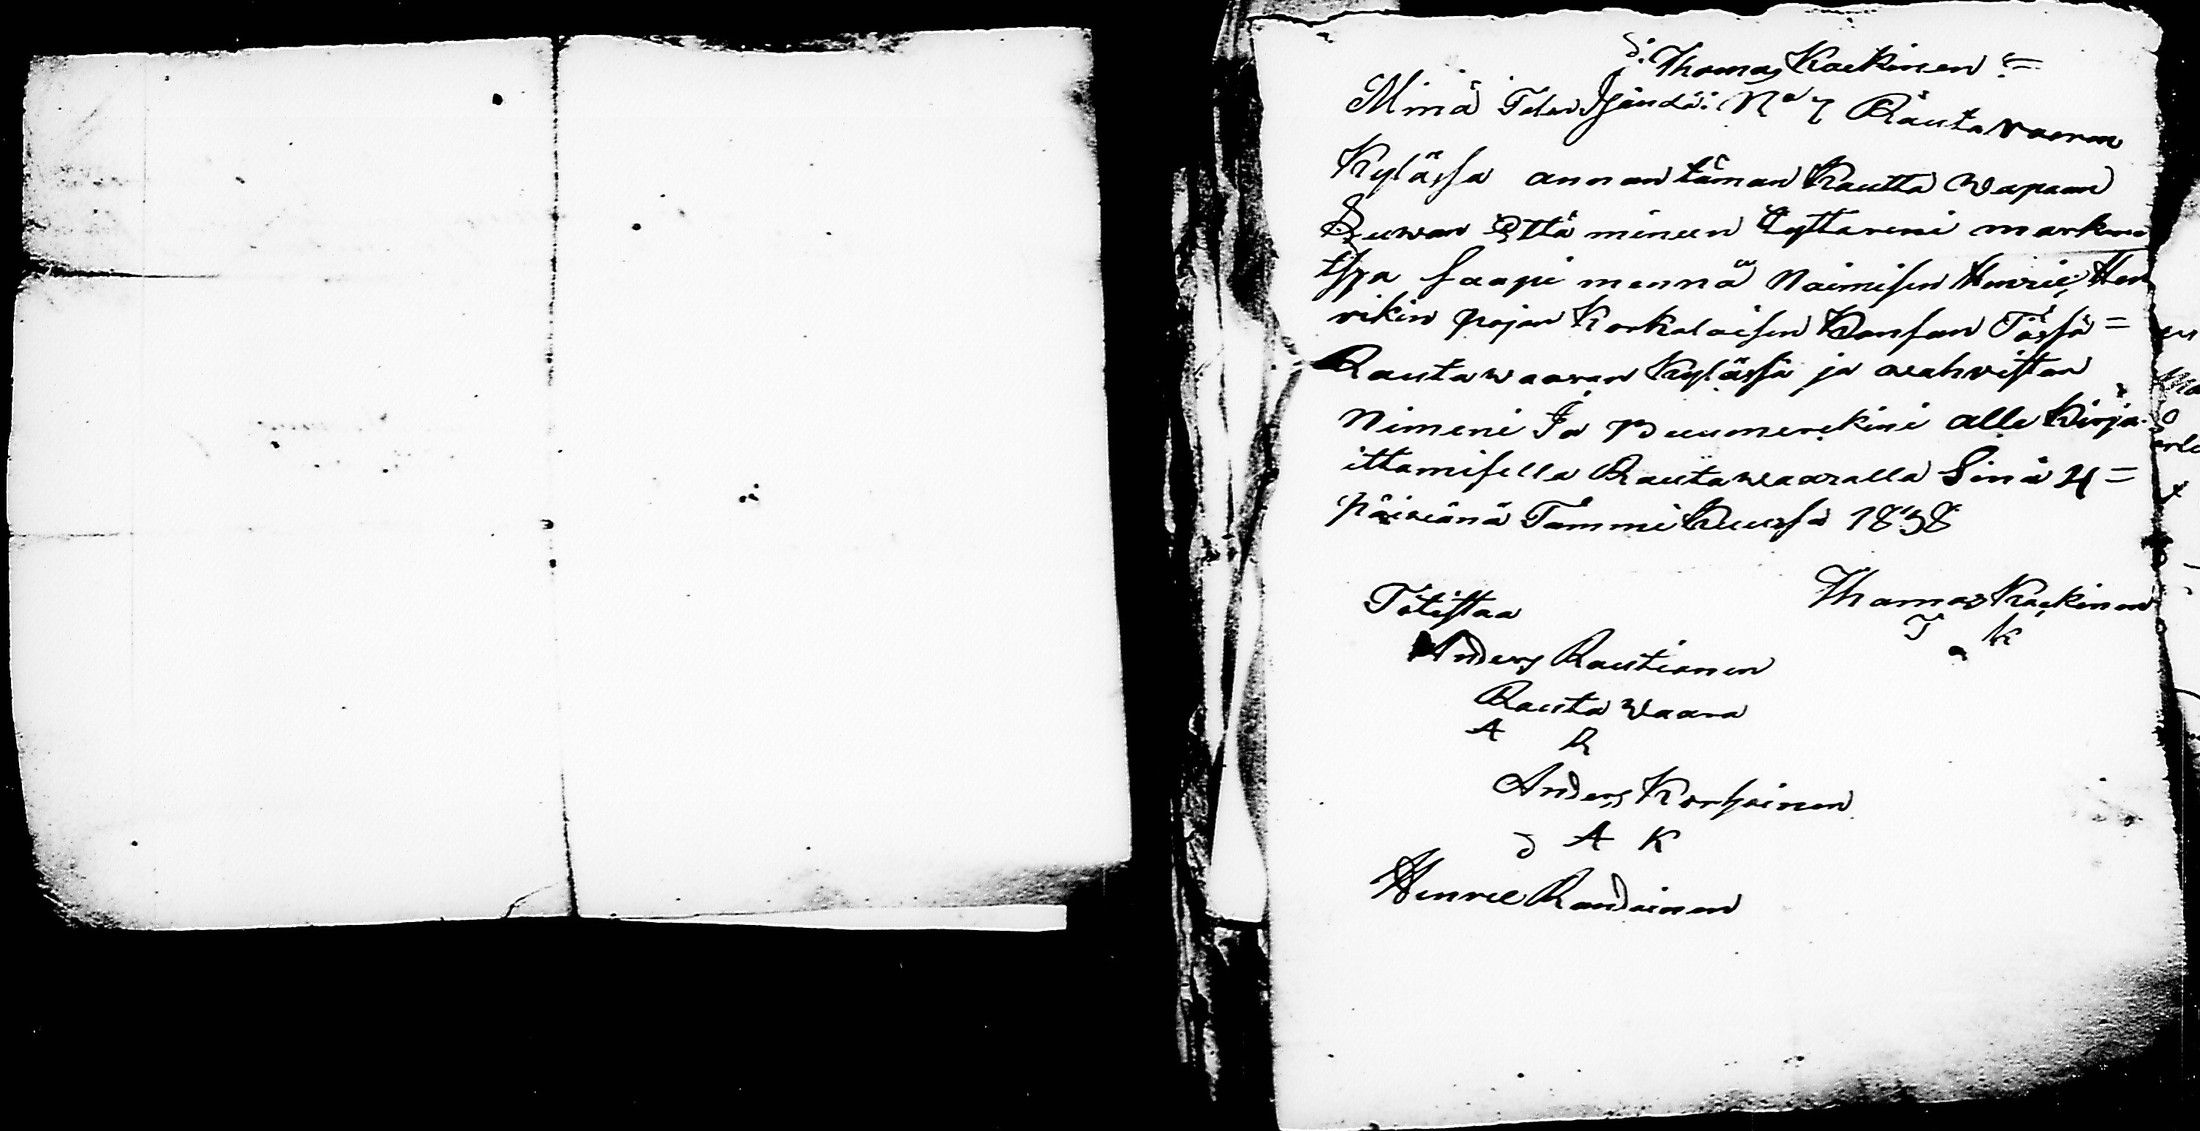 Thomas Kackinen =
Minä Talon Isändä: No 7 Rautavaaran
Kylässä annan täman Kautta wapaan
Luwan Että minun tyttareni markree
tha saapi mennä Naimisen Henric Hen
rikin pojan Korkalaisen Kansan Tässä =
Rautawaaran Kylässä ja wahvistan
Nimeni Ja Puumerckini alle Kirjo
ittamisella Rautawaaralla Sinä 4 =
päivänä Tammi Kuussa 1838
Totistaa
Thomas Kackinen
T K
Anders Rautianen
Rauta Waara
A R
Anders Korhoinen
A K
Henric Raudainen